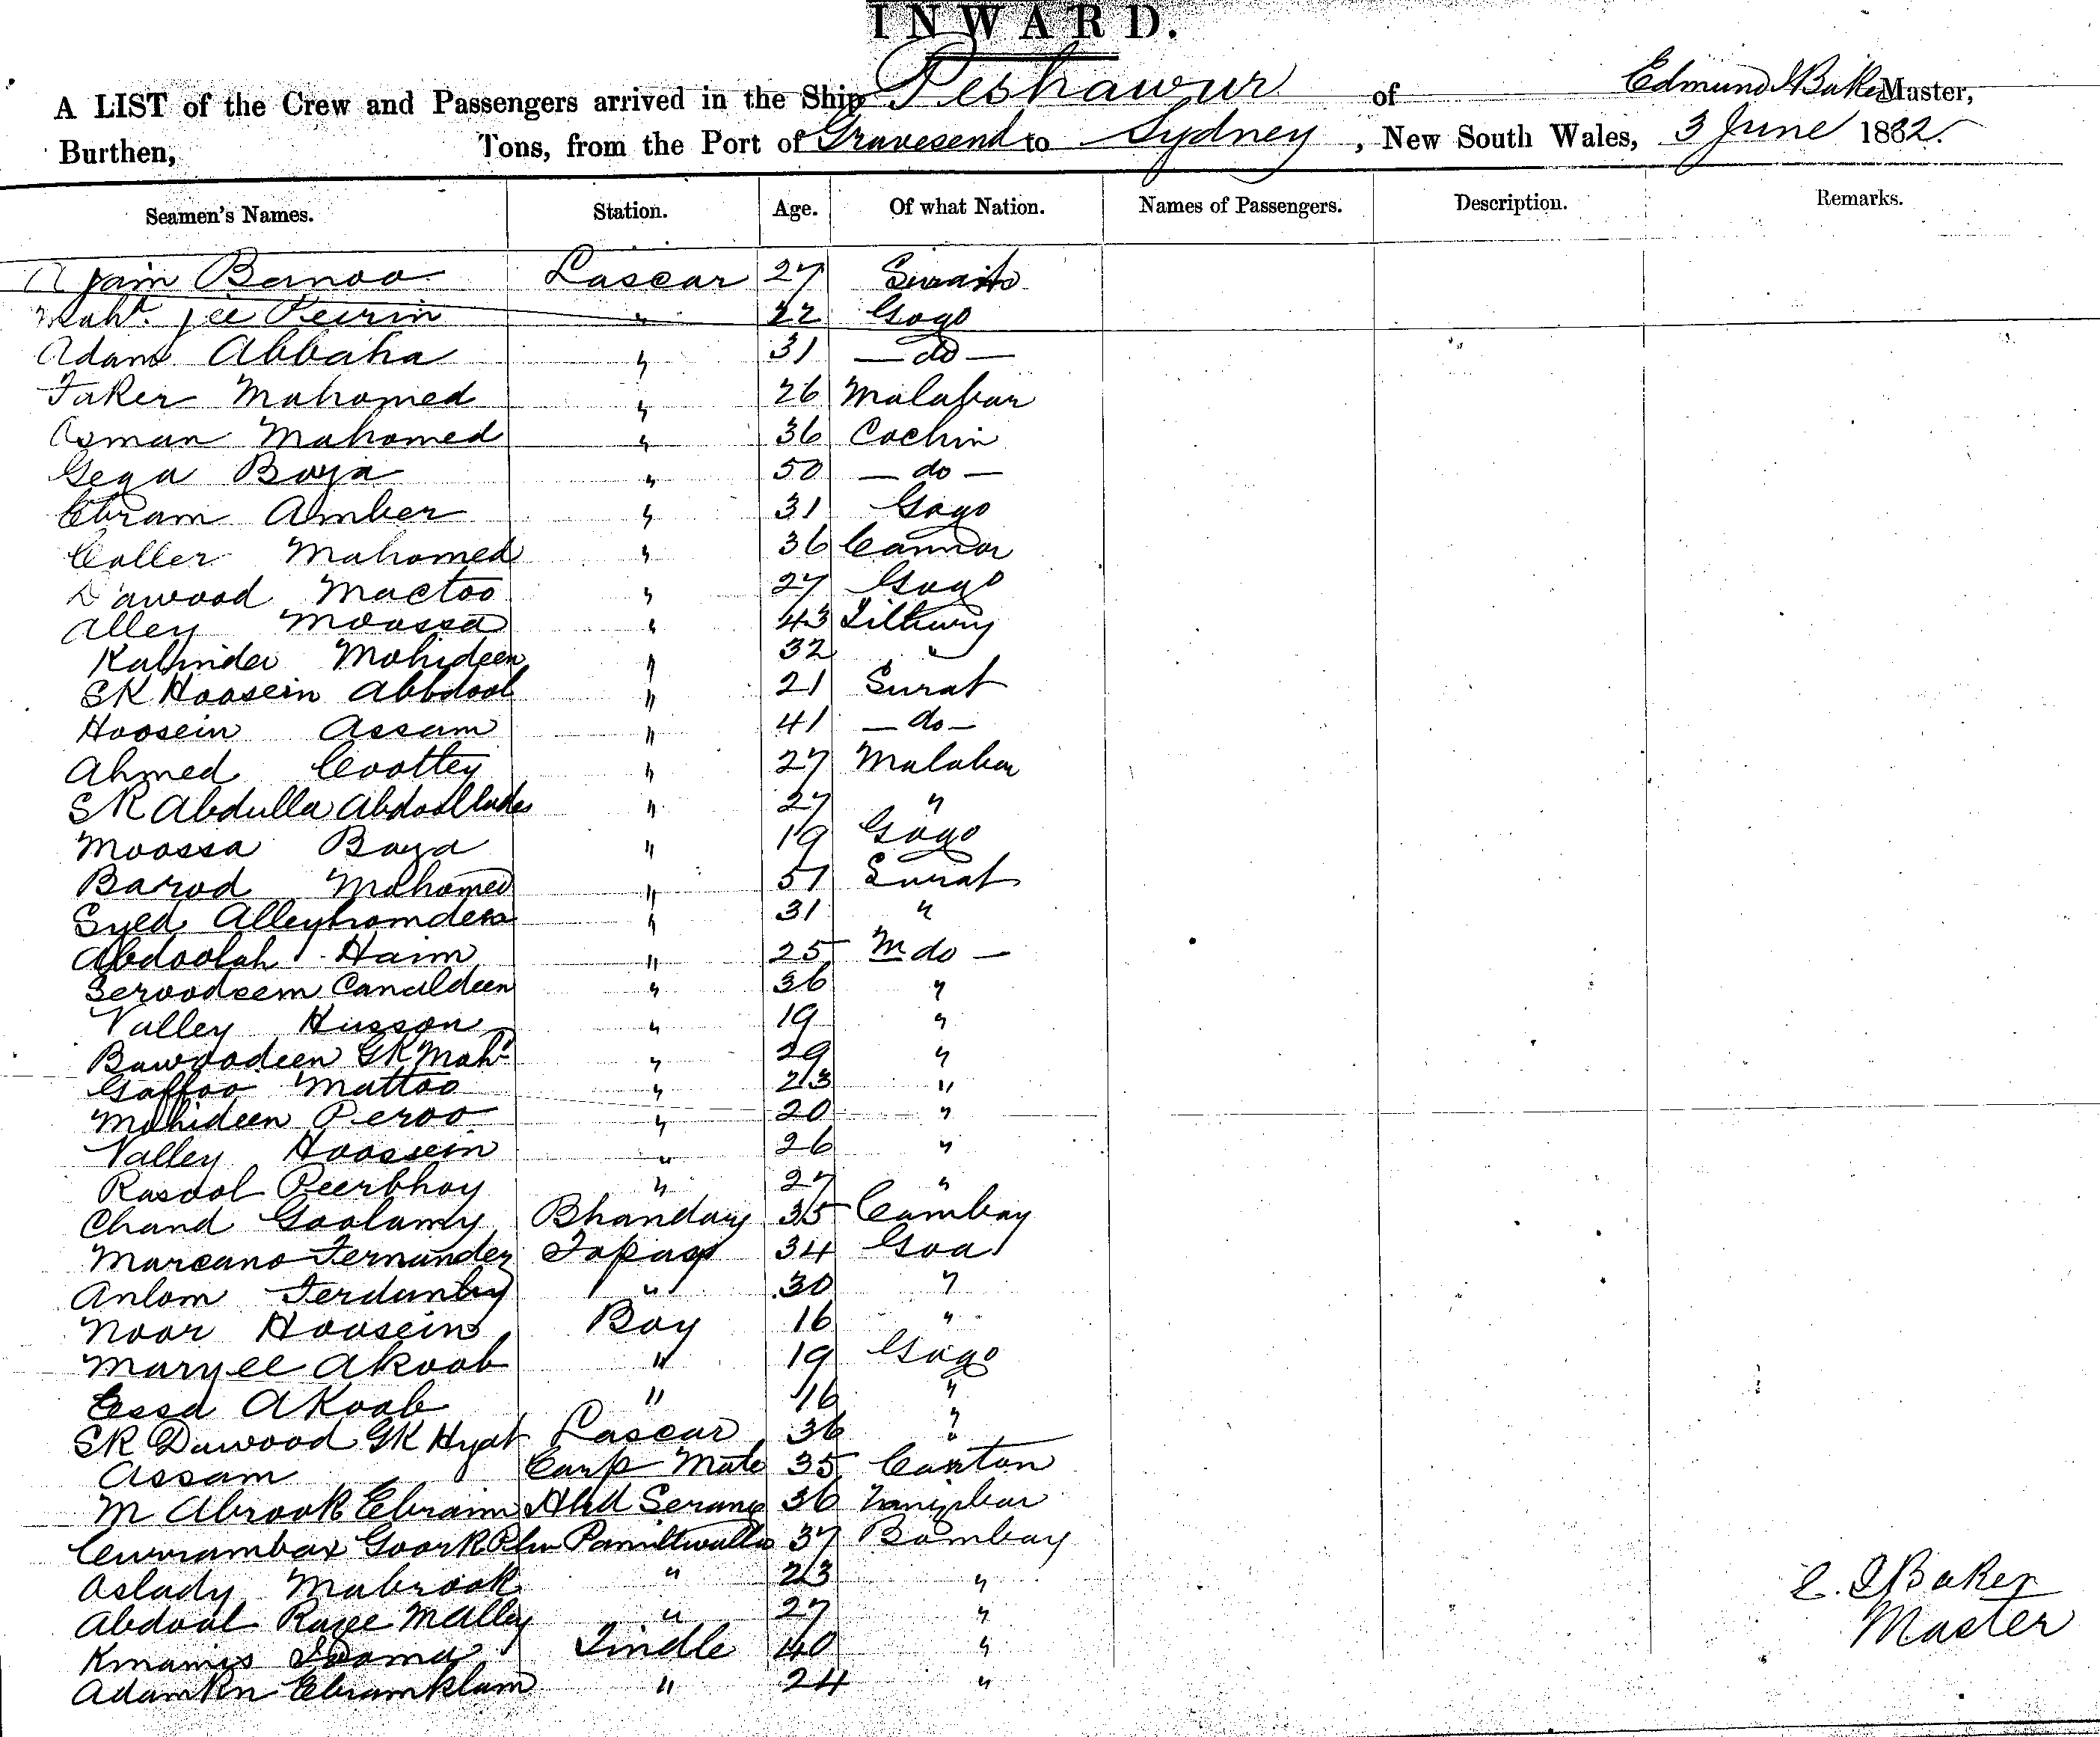 INWARD.
A LIST of the Crew and Passengers arrived in the Ship Peshawur of Edmund J Baker Master,
Burthen, Tons, from the Port of Gravesend to Sydney, New South Wales, 3 June 1882.
Seamen's Names. Station. Age. Of what Nation. Names of Passengers. Description. Remarks.
Banoo Lascar 27
Maht. jee Peirin " 22 Gogo
Adam Abbaha " 31 - do -
Faker Mahomed " 26 Malabar
Asman Mahomed " 36 Cochin
Gega Baya " 50 - do -
Ebram Amber " 31 Gogo
Caller Mahomed " 36
Dawood Mactoo " 27 Gogo
Alley Moossa " 43
Kalinder Mohideen " 32 "
SK Hoosein Abbdool " 21 Surat
Hoosein Assam " 41 - do -
Ahmed Coottey " 27 Malabar
SK Abdulla " 27 "
Moossa Baya " 19 Gogo
Barod Mahomed " 51 Surat
Syed " 31 "
Abdoolah Haim " 25 M do -
Canuldeen " 36 "
Valley Husson " 19 "
Bawoodeen GK Maht " 29 "
Gaffoo Mattoo " 23 "
Mohideen Peroo " 20 "
Valley Hoossein " 26 "
Rasool Peerbhoy " 27 "
Chand Goolamy Bhandary 35 Cambay
Marcano Fernandez Topass 34 Goa
Anlom " 30 "
Noor Hoosein Boy 16 "
Maryee Akoob " 19 Gogo
Essa Akoob " 16 "
SK Dawood GK Hyat Lascar 36 "
Assam Carp Mate 35 Canton
M Abrook Ebraim Serang 36 Zanzibar
Currambax 37 Bombay
Aslady Mabrook " 23 "
Abdool Malley " 27 "
Kmamis Tindle 40 "
" 24 "
E. J Baker
Master